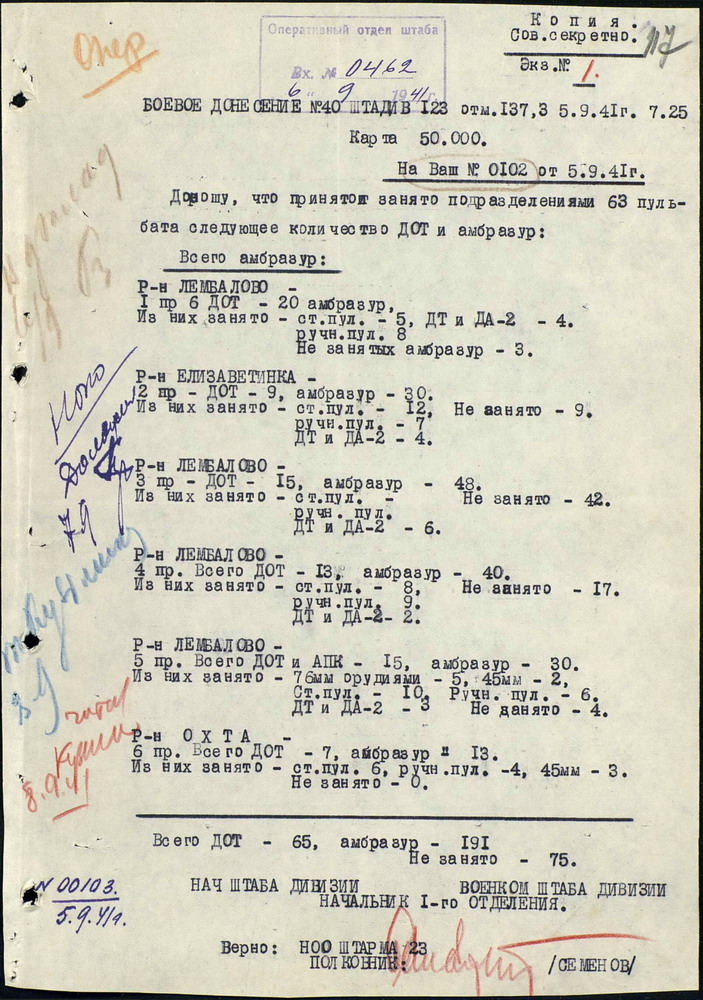 Копия.
Сов.секретно.
17
Экз.№ 1.
Опер
Оперативный отдел штаба
Вх. № 0462
6 " 9 1941 г.
БОЕВОЕ ДОНЕСЕНИЕ №40 ШТАДИВ I23 отм.I37,3 5.9.4Iг. 7.25
Карта 50.000.
На Ваш № 0I02 от 5.9.4Iг.
Доношу, что принятот занято подразделениями 63 пуль-
бата следующее количество ДОТ и амбразур:
Всего амбразур:
Р-н ЛЕМБАЛОВО -
I пр 6 ДОТ - 20 амбразур,
Из них занято - ст.пул. - 5, ДТ и ДА-2 - 4.
ручн.пул. 8
Не занятых амбразур - 3.
Р-н ЕЛИЗАВЕТИНКА -
2 пр - ДОТ - 9, амбразур - 30.
Из них занято - ст.пул. - I2, Не занято - 9.
ручн.пул. - 7
ДТ и ДА-2 - 4.
Р-н ЛЕМБАЛОВО -
3 пр - ДОТ - I5, амбразур - 48.
Из них занято - ст.пул. - Не занято - 42.
ручн. пул.
ДТ и ДА-2 - 6.
Р-н ЛЕМБАЛОВО -
4 пр. Всего ДОТ - I3, амбразур - 40.
Из них занято - ст.пул. - 8, Не занято - I7.
ручн.пул. 9.
ДТ и ДА-2- 2.
Р-н ЛЕМБАЛОВО -
5 пр. Всего ДОТ и АПК - I5, амбразур - 30.
Из них занято - 76мм орудиями - 5, 45мм - 2,
Ст.пул. - I0, Ручн. пул. - 6.
ДТ и ДА-2 - 3 Не данято - 4.
Р-н ОХТА -
6 пр. Всего ДОТ - 7, амбразур " I3.
Из них занято - ст.пул. 6, ручн.пул. -4, 45мм - 3.
Не занято - 0.
Всего ДОТ - 65, амбразур - I9I
Не занято - 75.
8.9.41
N 00103.
5.9.41г.
НАЧ ШТАБА ДИВИЗИИ ВОЕНКОМ ШТАБА ДИВИЗИИ
НАЧАЛЬНИК I-го ОТДЕЛЕНИЯ.
Верно: НОО ШТАРМА 23
ПОЛКОВНИК: /СЕМЕНОВ/